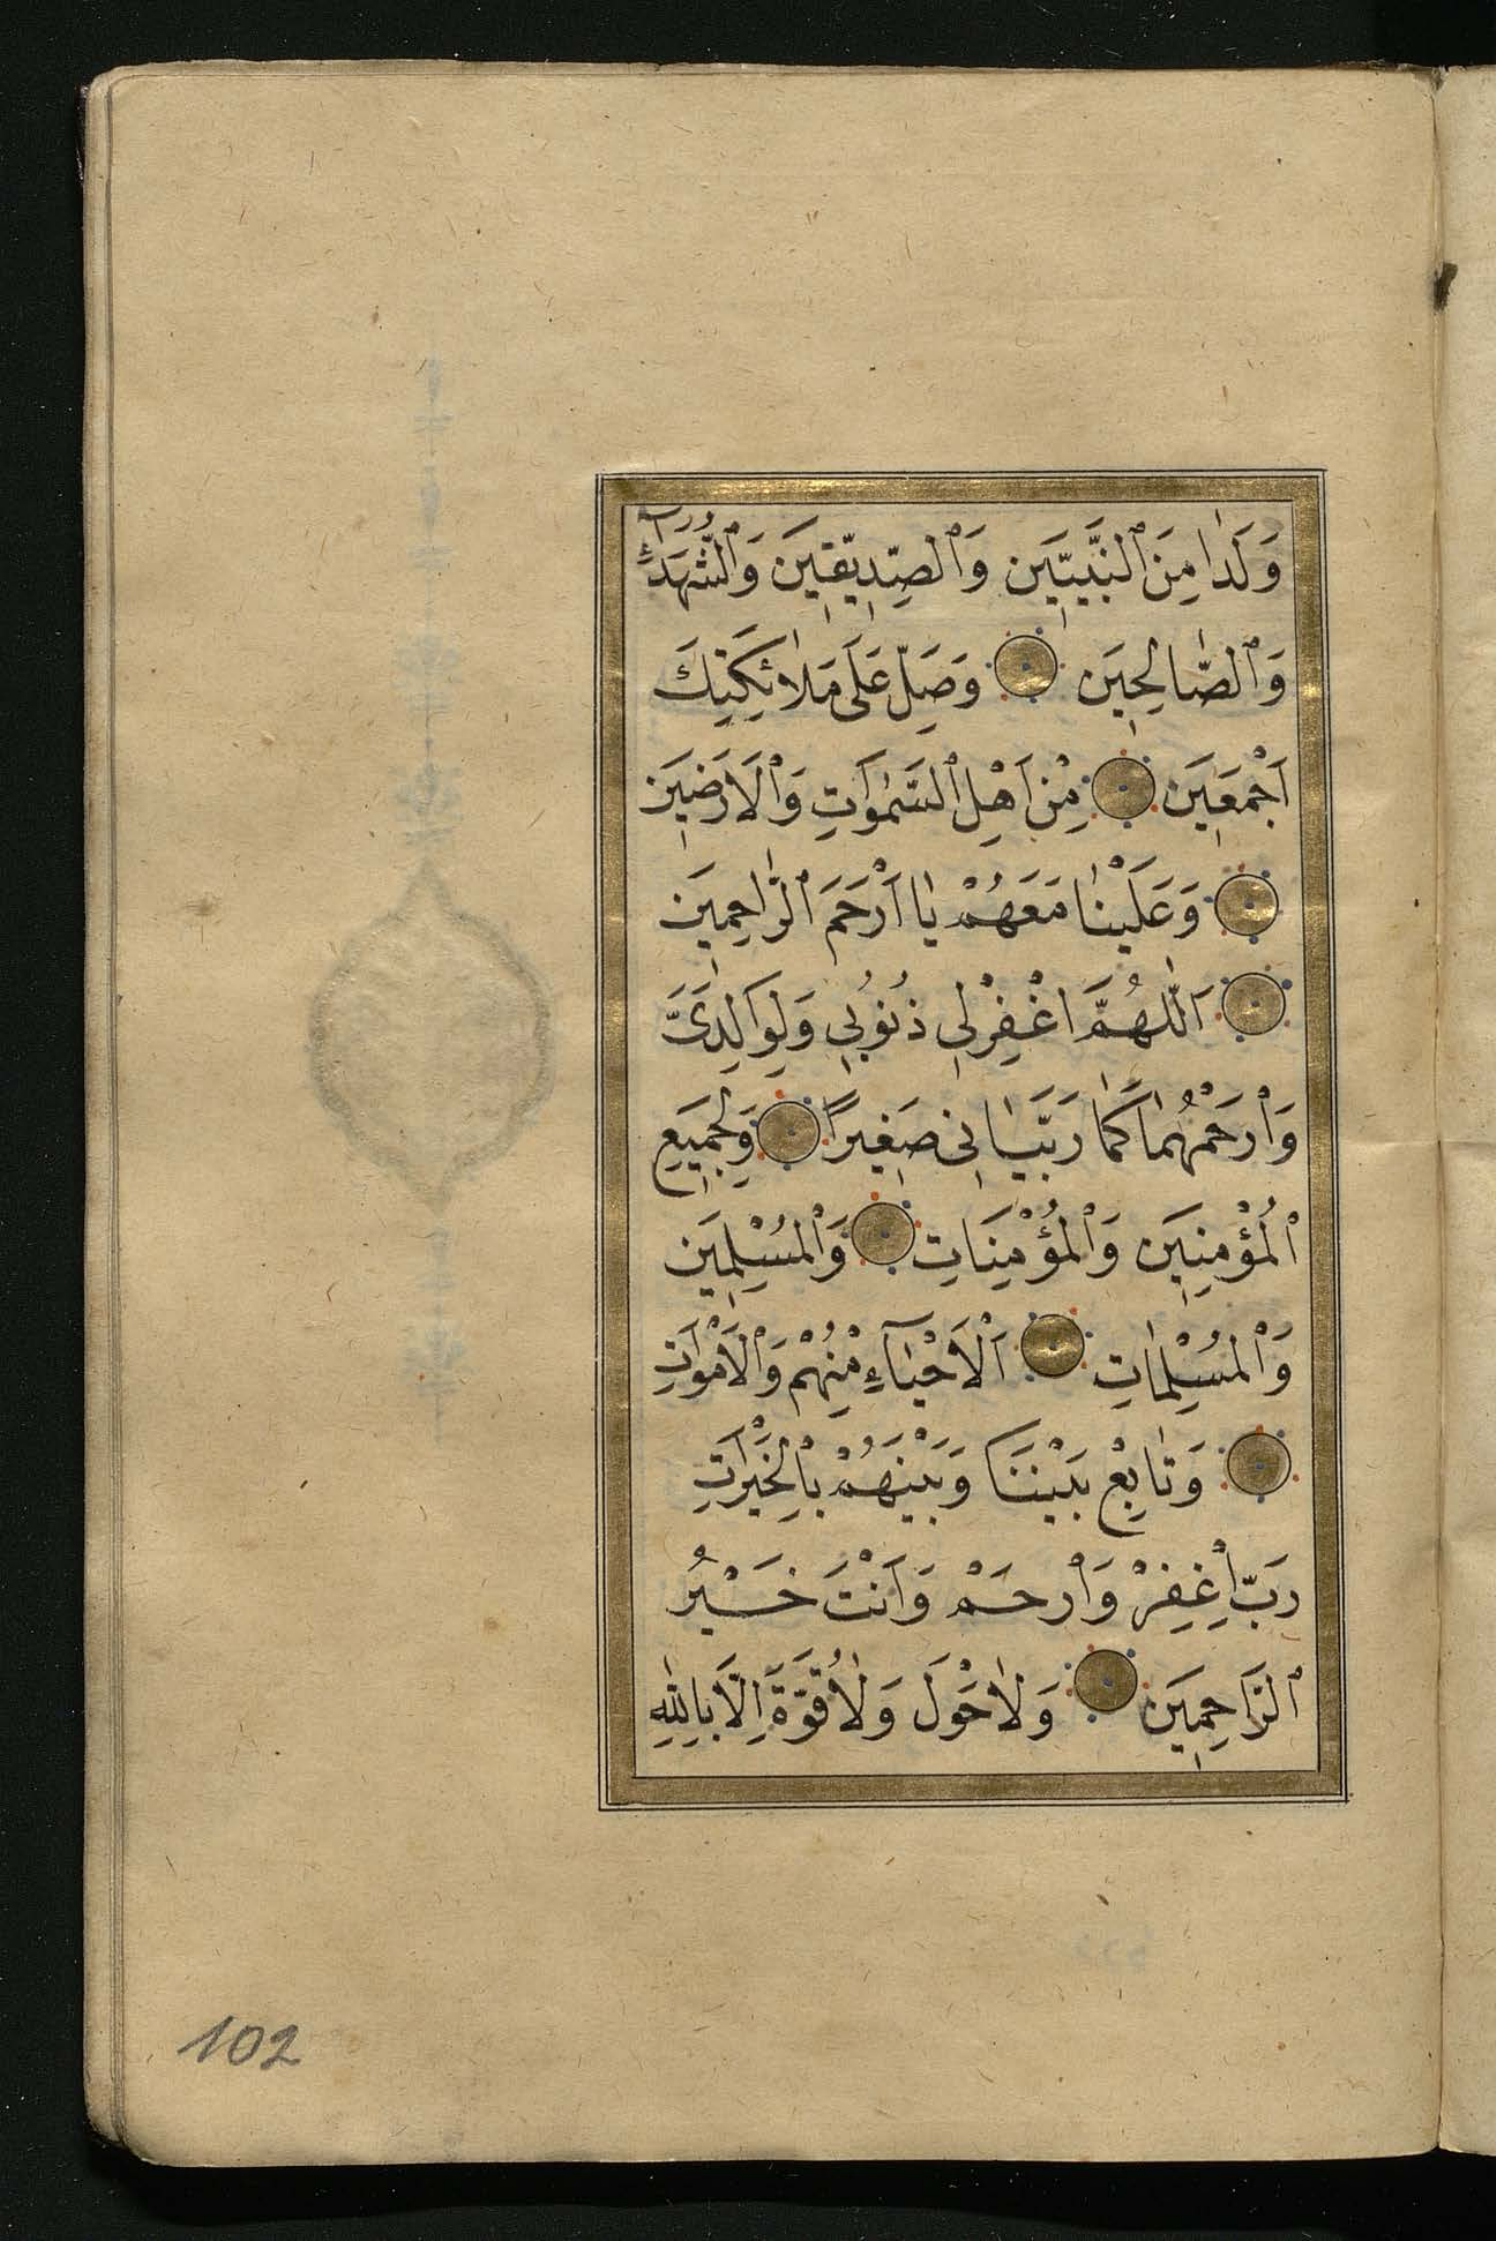 وَلَدَا مِنَ ٱلنَّبِيّٖيَن وَٱلصِّدِيّقٖيَن وَٱلشُّهَدَآءِ
وَٱلصّٰالِحٖيَن وَصَلِّ عَلَى مَلٰائِكَتِكَ
اَجْمَعٖيَن مِنْ اَهْلِ ٱلسَّمٰوَاتِ وَٱلاَرَضٖيَن
وَعَلَيْنٰا مَعَهُمْ يٰا اَرْحَمَ ٱلرّٰاحِمٖيَن
اَللّٰهُمَّ اغْفِرْلٖي ذُنُوبٖي وَلِوَالِدَىَّ
وَٱرْحَمْهُمٰا كَمٰا رَبَّيٰانٖى صَغٖيرًا وَلِجَمٖيَعِ
ٱلْمُؤْمِنٖيَن وَٱلْمُؤْمِنَاتِ وَٱلْمُسْلِمٖيَن
وَٱلْمُسْلِمٰاتِ اَلْاَحْيٰآءِ مِنْهُمْ وَٱلْاَمْوَاتِ
وَتٰابِعْ بَيْنَنَا وَبَيْنَهُمْ بِٱلْخَيْرَاتِ
رَبِّ اِغْفِرْ وَٱرْحَمْ وَاَنْتَ خَيْرُ
ٱلرَّاحِمٖيَن وَلٰاحَوْلَ وَلٰاقُوَّةَ اِلَّابِاللّٰهِ
102